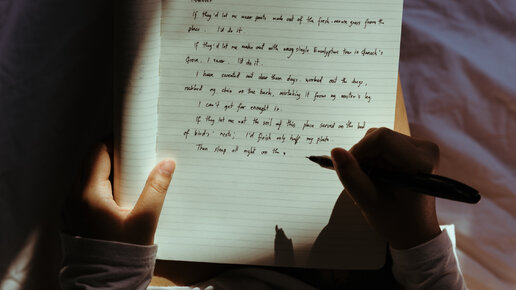 If they'd let me wear pants made out of the fresh-mown grass from the
place. I'd do it.
If they'd let me make out with every single Eucalyptus tree in
Grove. I swear. I'd do it.
I have sweated out dew these days. worked out the dregs,
rubbed my chin on the bark, mistaking it for my master's leg.
I can't get far enough in.
If they let me eat the soil of this place served on the bed
of birds' nests; I'd finish only half my plate.
Then sleep all night on the